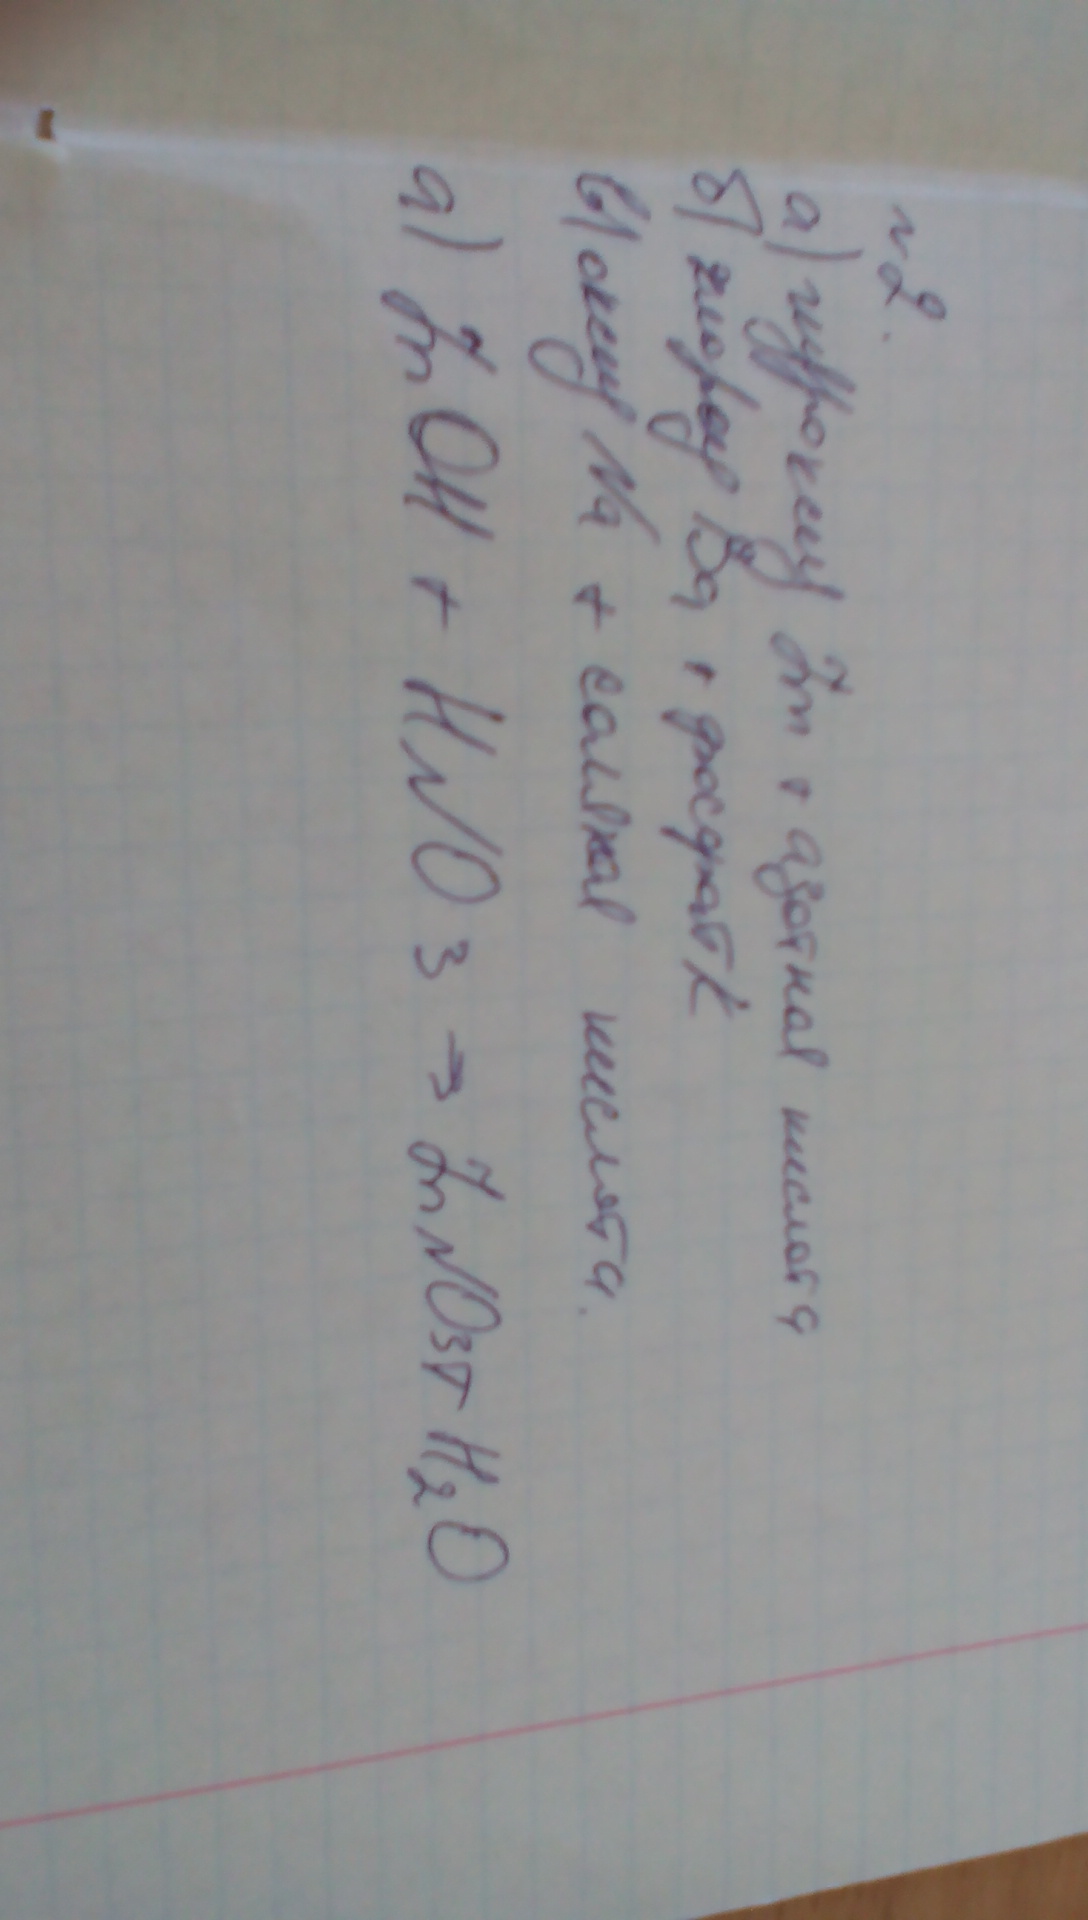 №2.
а) гидроксид Zn + азотная кислота
б) хлорид Ba + фосфат K
в) оксид Na + соляная кислота.
а) ZnOH + HNO3 → ZnNO3 + H2O